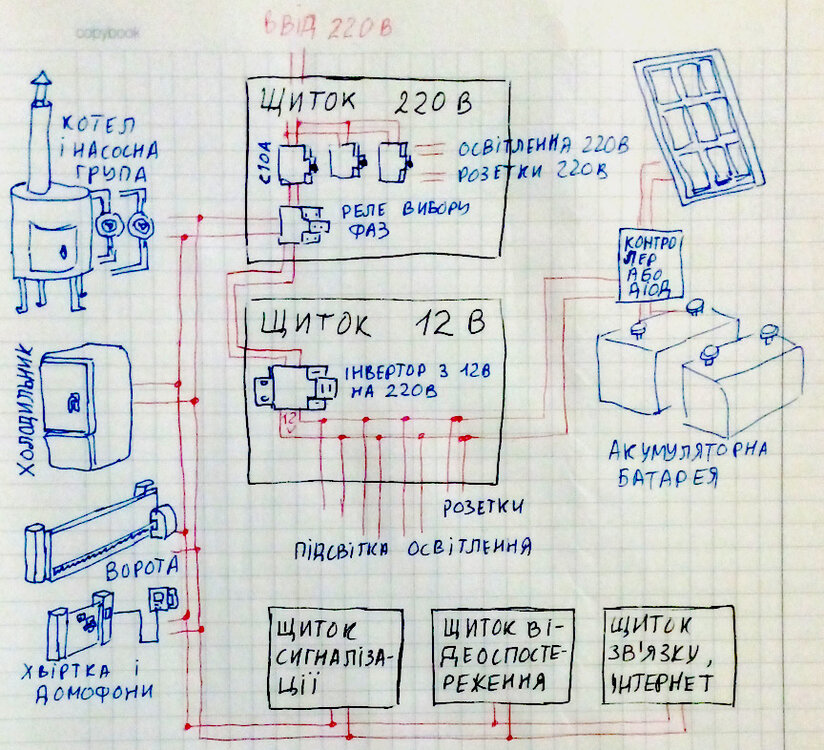 copybook
ВВІД 220В
ЩИТОК 220 В
КОТЕЛ
І НАСОСНА
ГРУПА
С10А
ОСВІТЛЕННЯ 220В
РОЗЕТКИ 220В
РЕЛЕ ВИБОРУ
ФАЗ
КОНТРО
ЛЕР
АБО
ДІОД
ЩИТОК 12 В
ІНВЕРТОР З 12В
НА 220В
12
ХОЛОДИЛЬНИК
АКУМУЛЯТОРНА
БАТАРЕЯ
РОЗЕТКИ
ПІДСВІТКА ОСВІТЛЕННЯ
ВОРОТА
ХВІРТКА І
ДОМОФОНИ
ЩИТОК
СИГНАЛІЗА-
ЦІЇ
ЩИТОК ВІ-
ДЕОСПОСТЕ-
РЕЖЕННЯ
ЩИТОК
ЗВ'ЯЗКУ,
ІНТЕРНЕТ